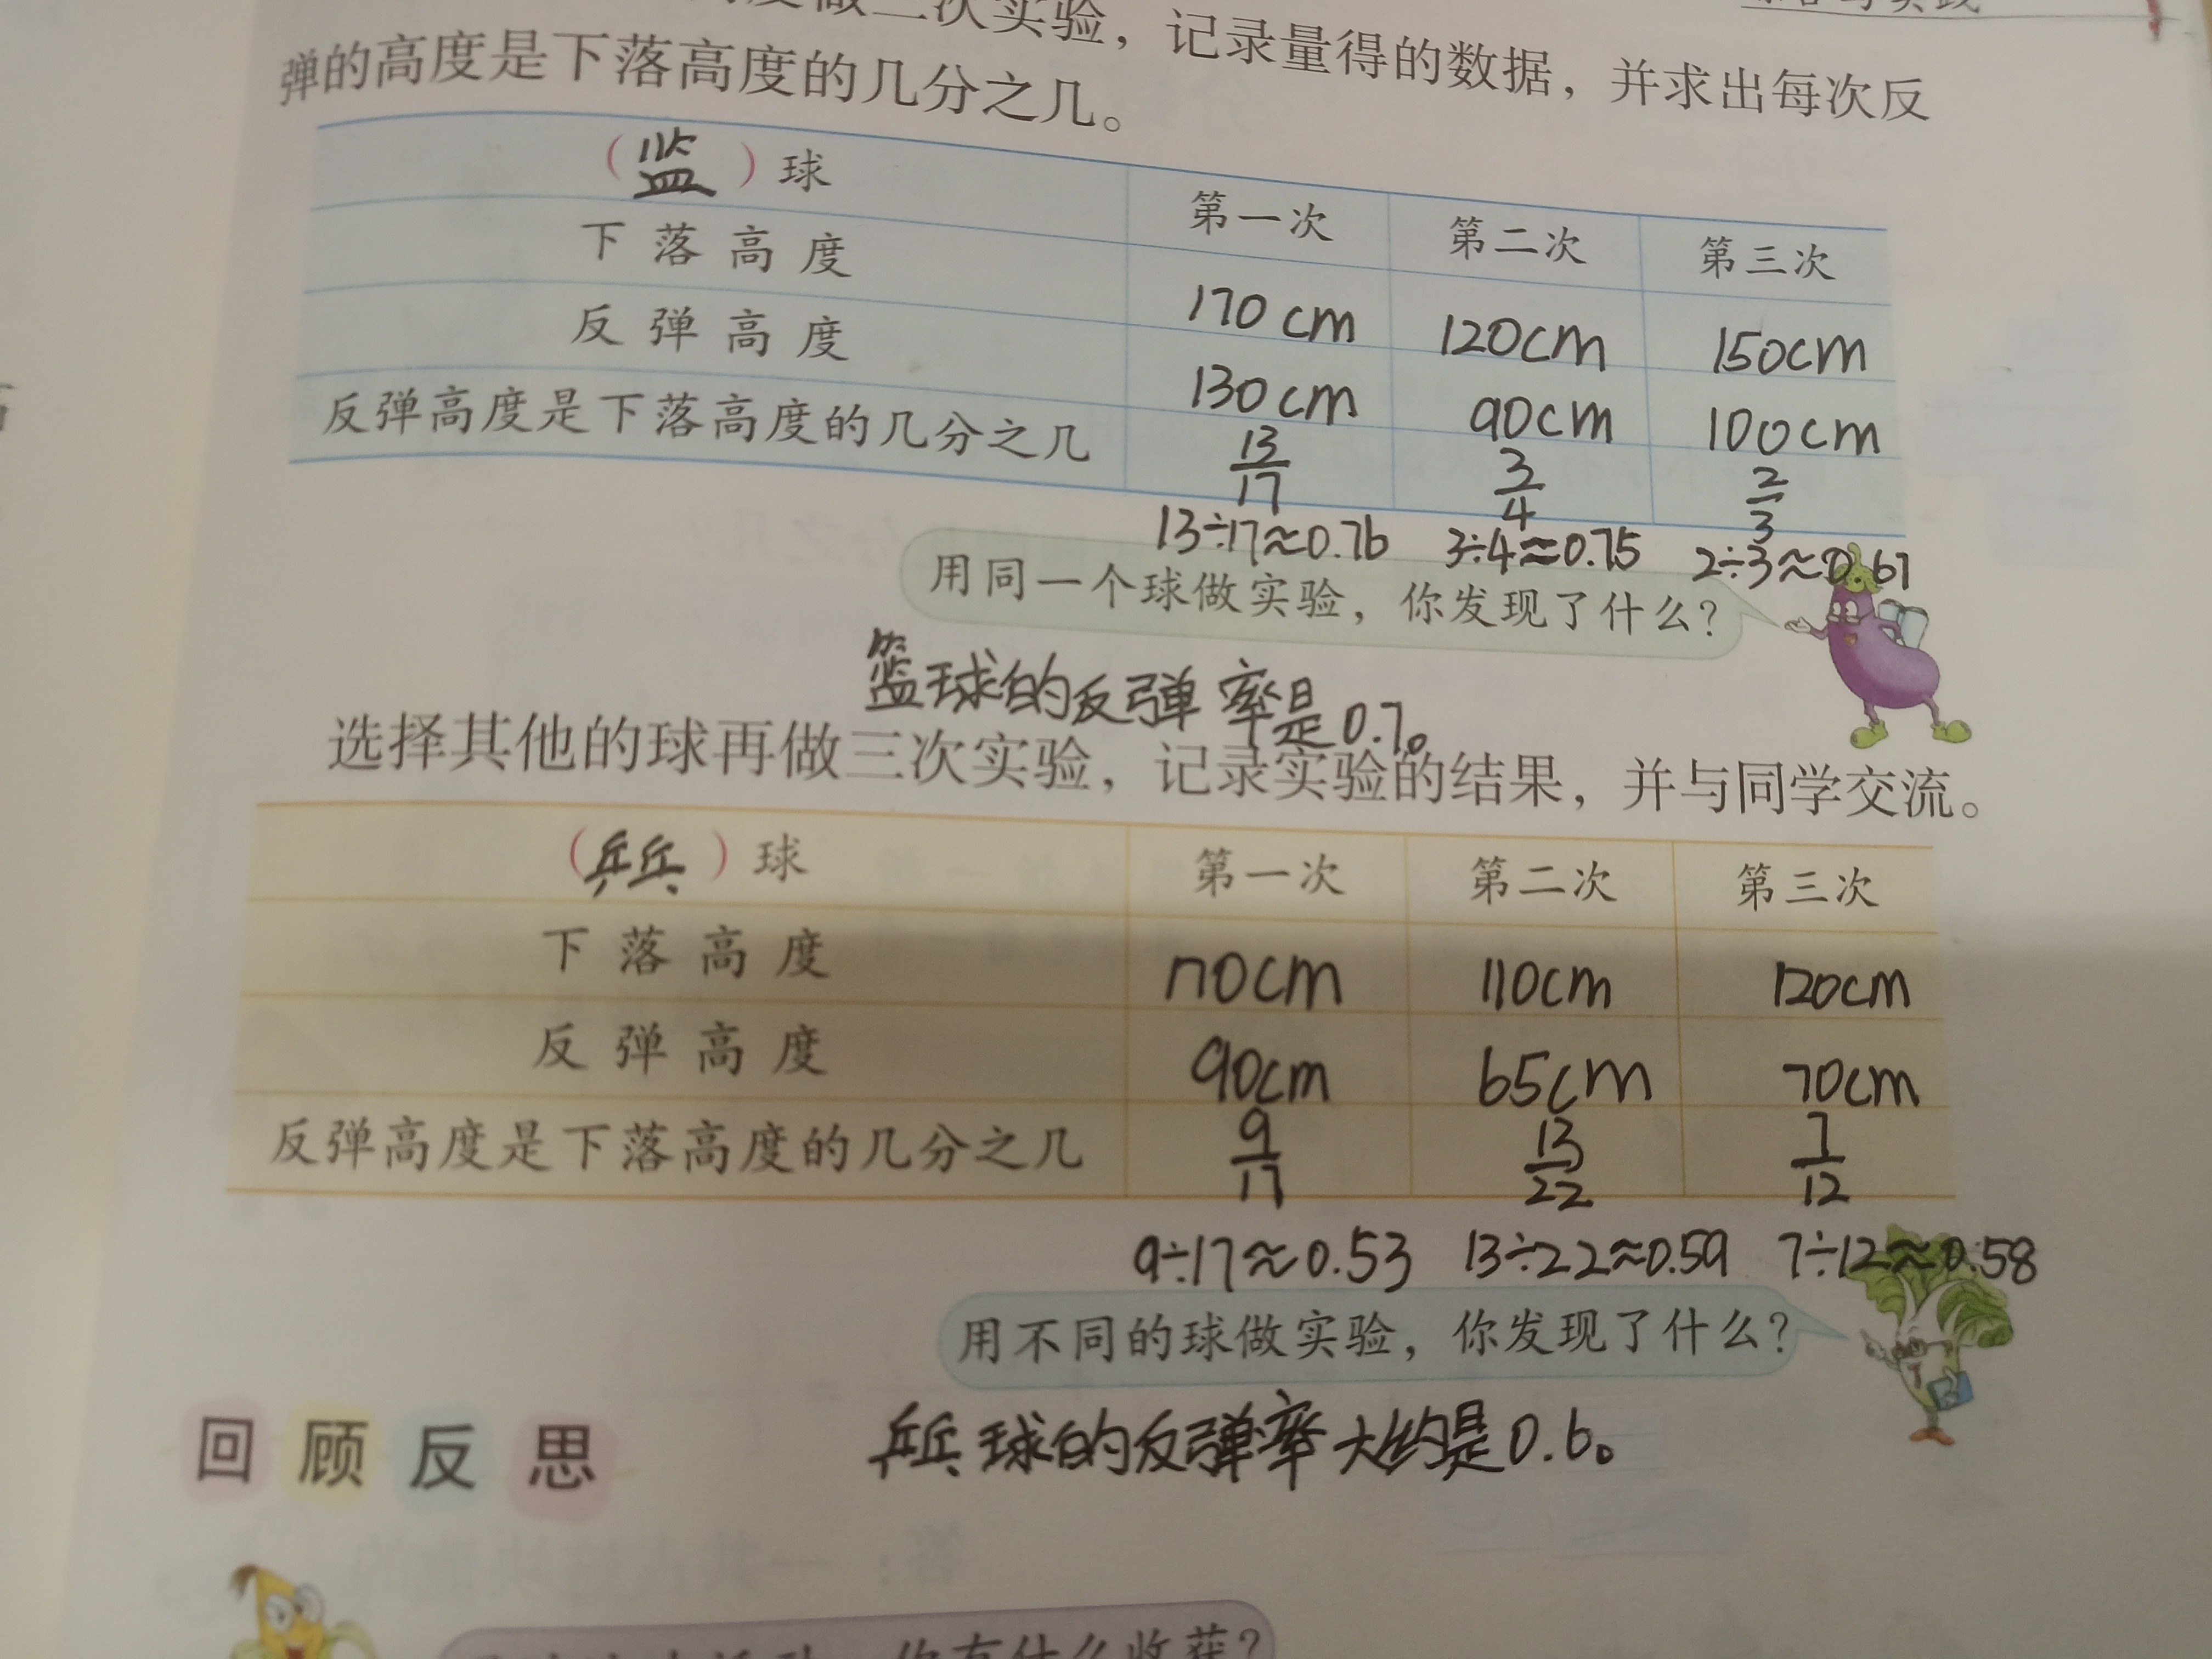 度做三次实验，记录量得的数据，并求出每次反
弹的高度是下落高度的几分之几。
（监）球 第一次 第二次 第三次
下落高度 170cm 120cm 150cm
反弹高度 130cm 90cm 100cm
反弹高度是下落高度的几分之几 13/17 3/4 2/3
13÷17≈0.76 3÷4≈0.75 2÷3≈0.67
用同一个球做实验，你发现了什么？
篮球的反弹率是0.7。
选择其他的球再做三次实验，记录实验的结果，并与同学交流。
（乒乓）球 第一次 第二次 第三次
下落高度 170cm 110cm 120cm
反弹高度 90cm 65cm 70cm
反弹高度是下落高度的几分之几 9/17 13/22 7/12
9÷17≈0.53 13÷22≈0.59 7÷12≈0.58
用不同的球做实验，你发现了什么？
乒乓球的反弹率大约是0.6。
回顾反思
你有什么收获？